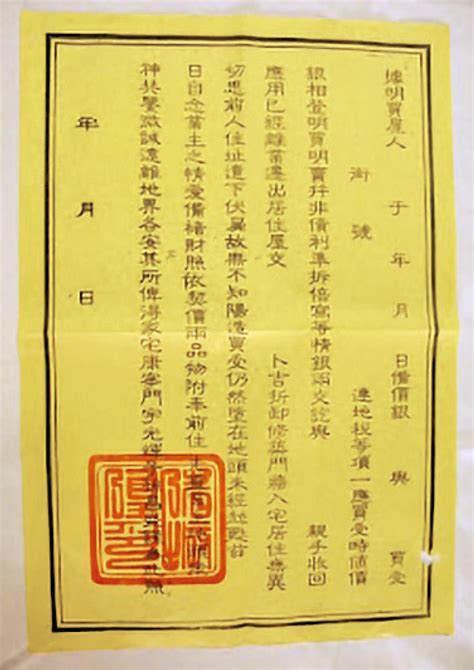 據明買屋人 于 年 月 日備價銀 與 買受
街 號 連地稅等項一應買受時値價
銀相登明買明賣幷非債利準拆倍寫等情銀兩交訖與 親手收回
應用已經離業遷出居住屋交 卜吉折卸修葺門牆入宅居住無異
切思前人住址遺下伏異故無不知陽造買受仍然墮在地頭未經超甦茲
日自念業主之情爰備禇財照依契價兩品物附奉前住
神共鑒微誠遠離地界各安其所俾得家宅康寧門宇光輝 爲此照
年 月 日